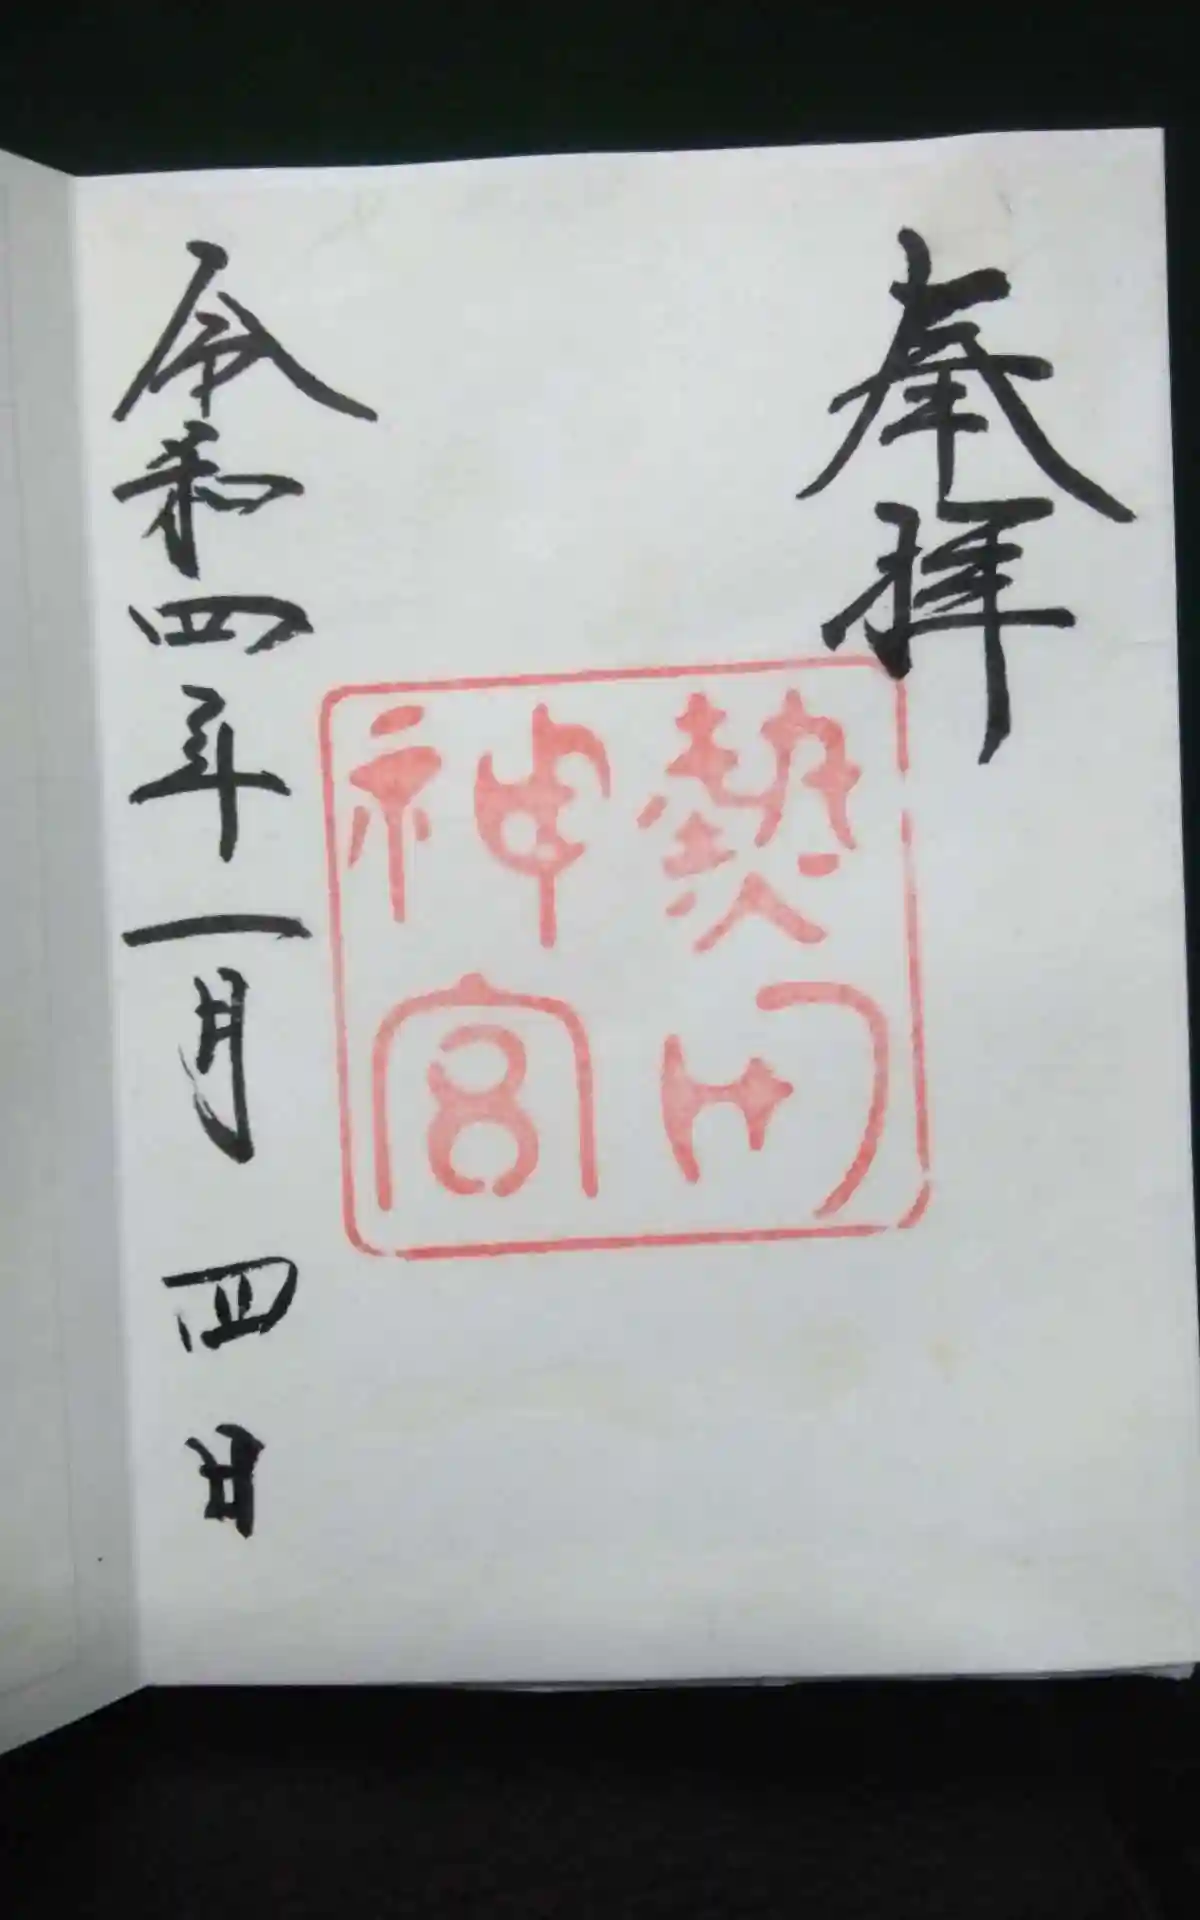 奉拝
熱田
神宮
令和四年一月四日